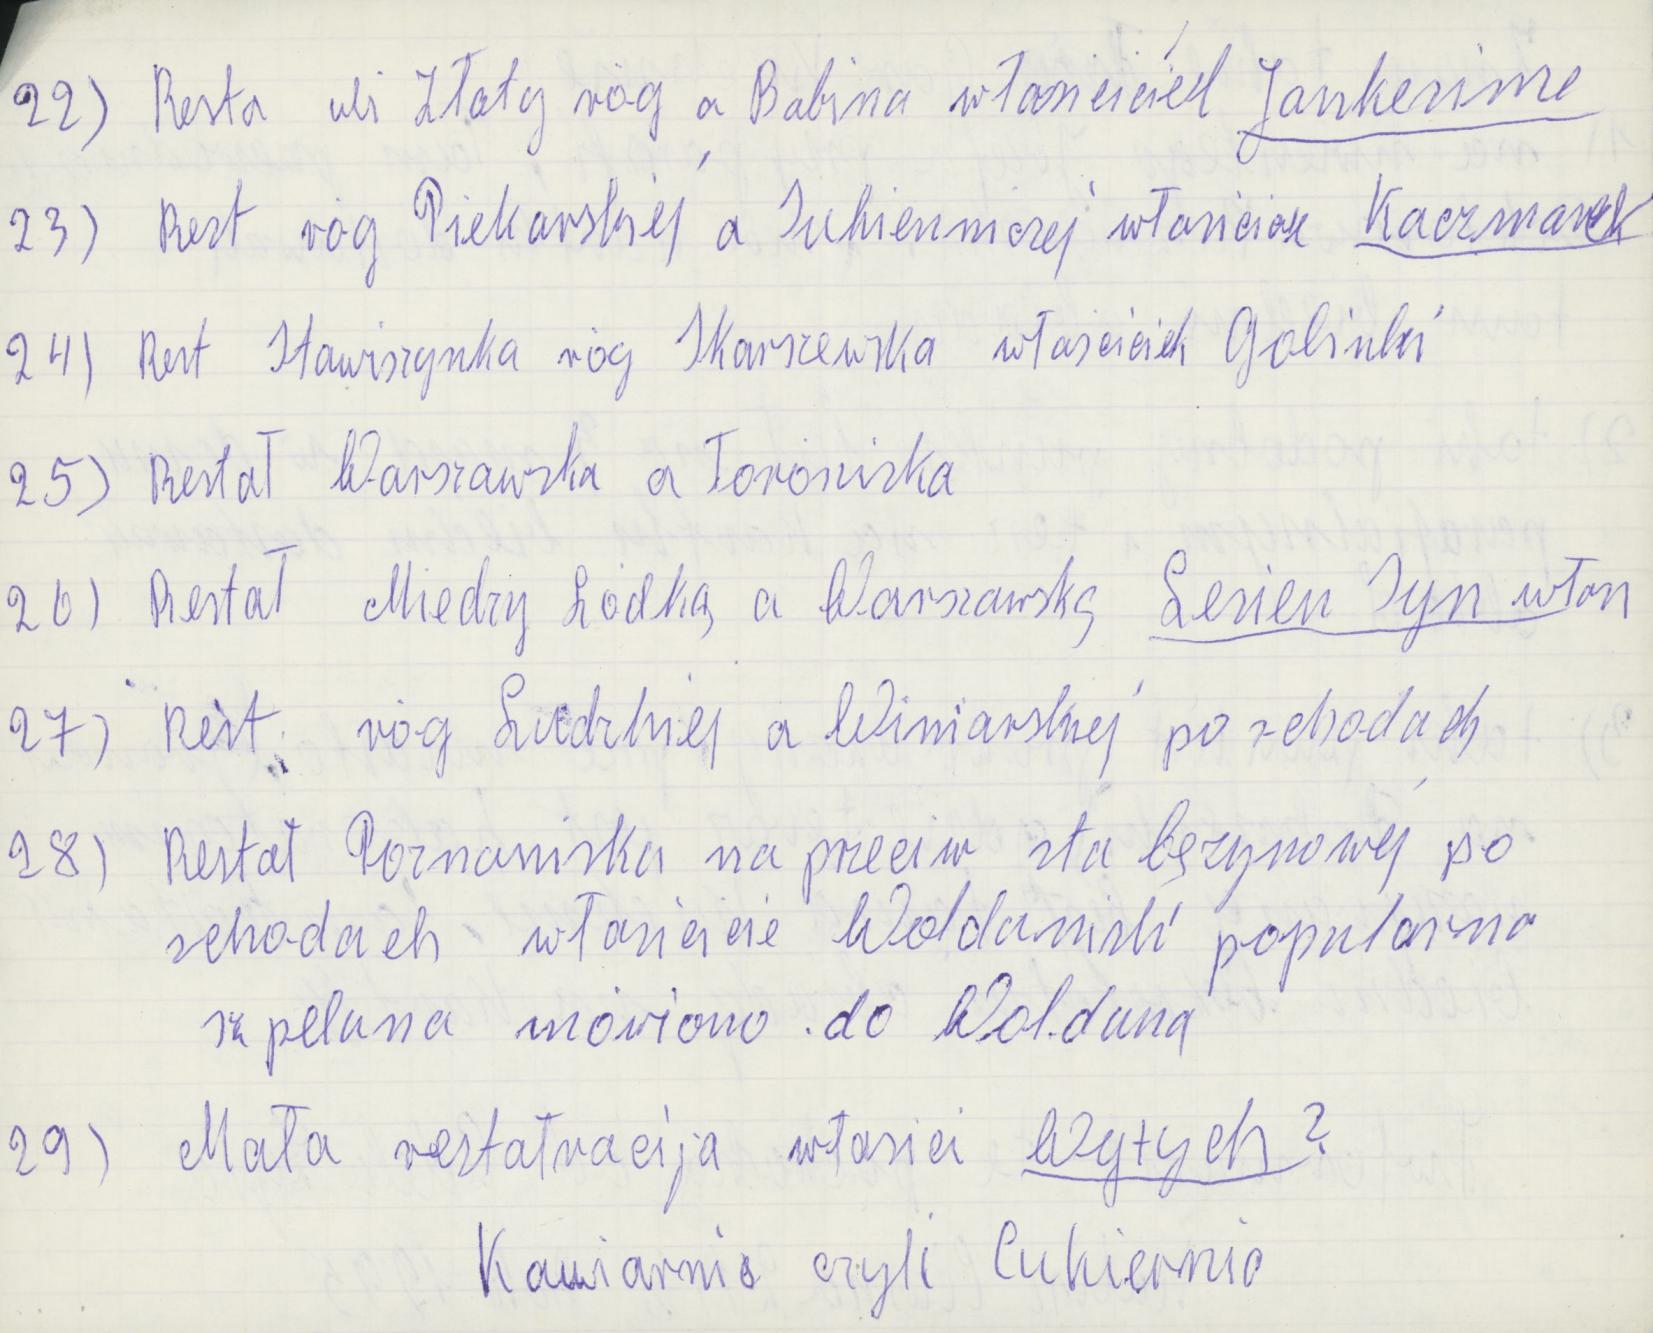 22) Resta uli Złoty róg a Babina właściciel Jankerime
23) Rest róg Piekarskiéj a Sukienniczej właściciek Kaczmarek
24) Rest Stawiszynka róg Skarszewska właściciek Golinki
25) Restał Warszawska a Toróniska
26) Restał Miedzy Łódką a Warszawską Lesien Syn włas
27) Rest. róg Łudzkiej a Winiarskiej po schodach
28) Restał Poznaniska na przeciw sta bęzynowéj po
schodach właścicie Woldaniski popularna
szpeluna mówiono do Woldana
29) Mała restałracija właści Wytych?
Kawiarnia czyli Cukiernia